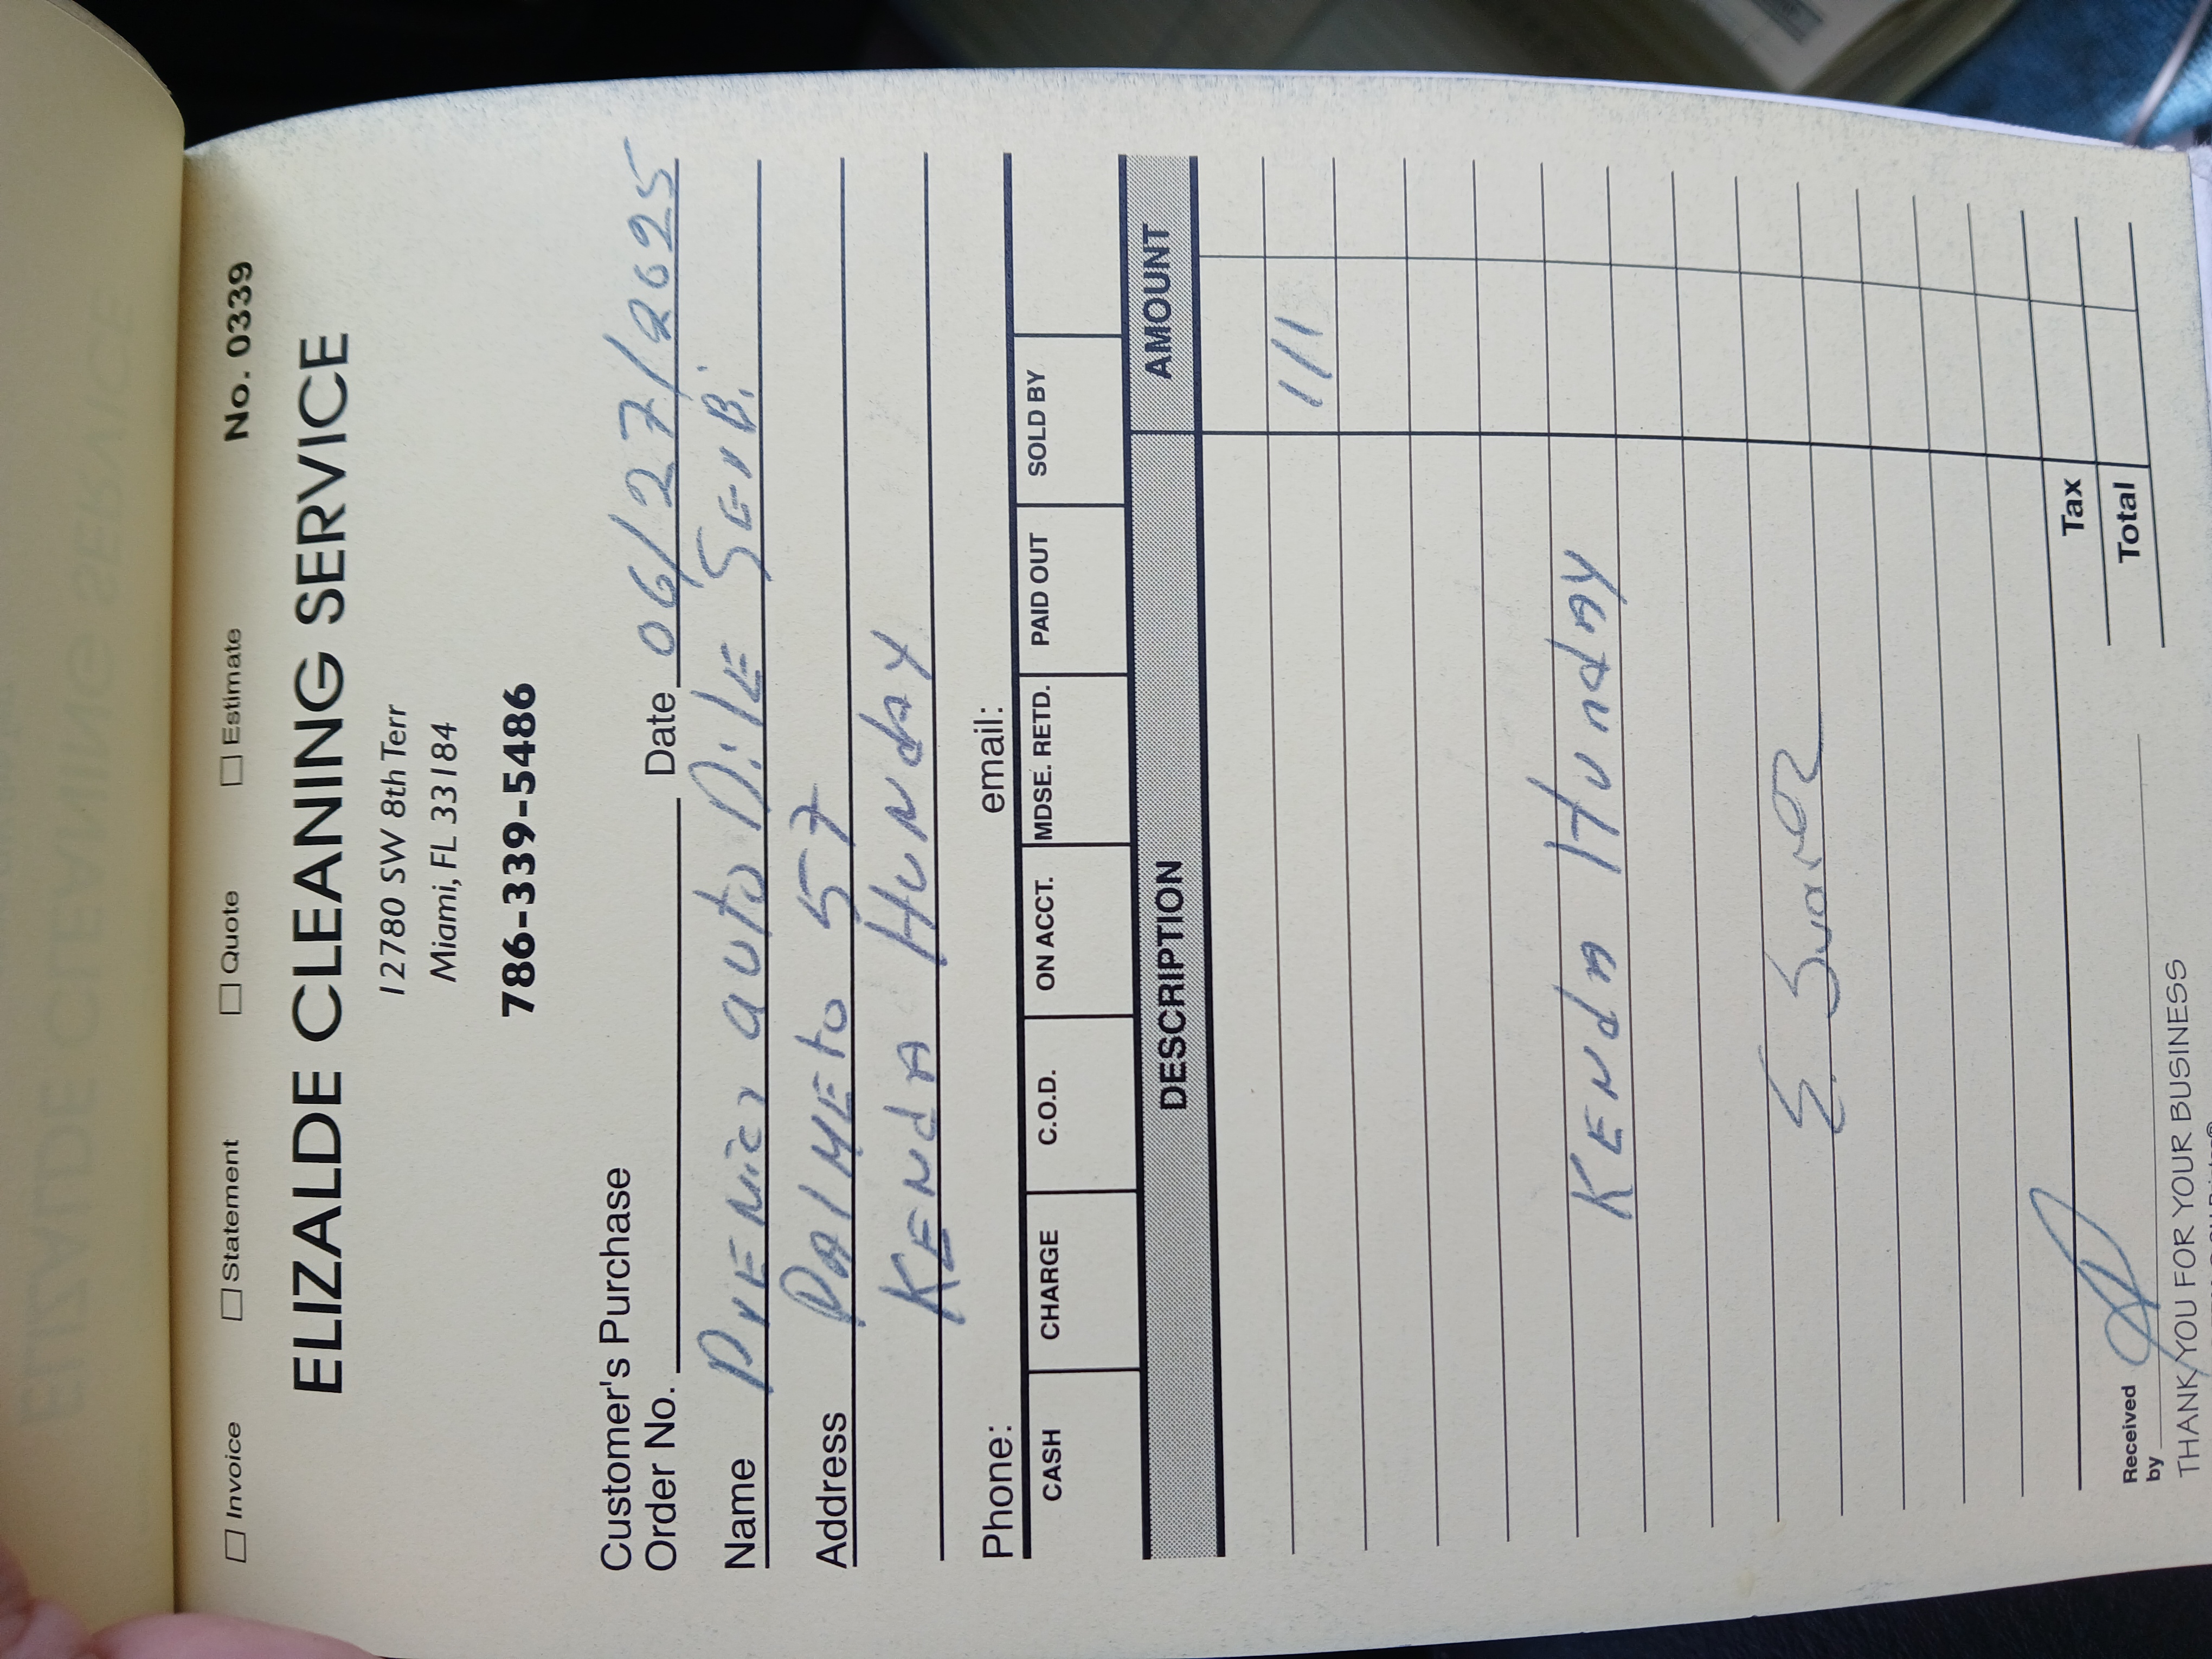 ☐ Invoice ☐ Statement ☐ Quote ☐ Estimate No. 0339
ELIZALDE CLEANING SERVICE
12780 SW 8th Terr
Miami, FL 33184
786-339-5486
Customer's Purchase
Order No. Date 06/27/2025
Name auto
Address PalMEto 57
KENdA HUNday
Phone: email:
CASH CHARGE C.O.D. ON ACCT. MDSE. RETD. PAID OUT SOLD BY
DESCRIPTION AMOUNT
111
KENdA Hunday
Tax
Total
Received
by
THANK YOU FOR YOUR BUSINESS